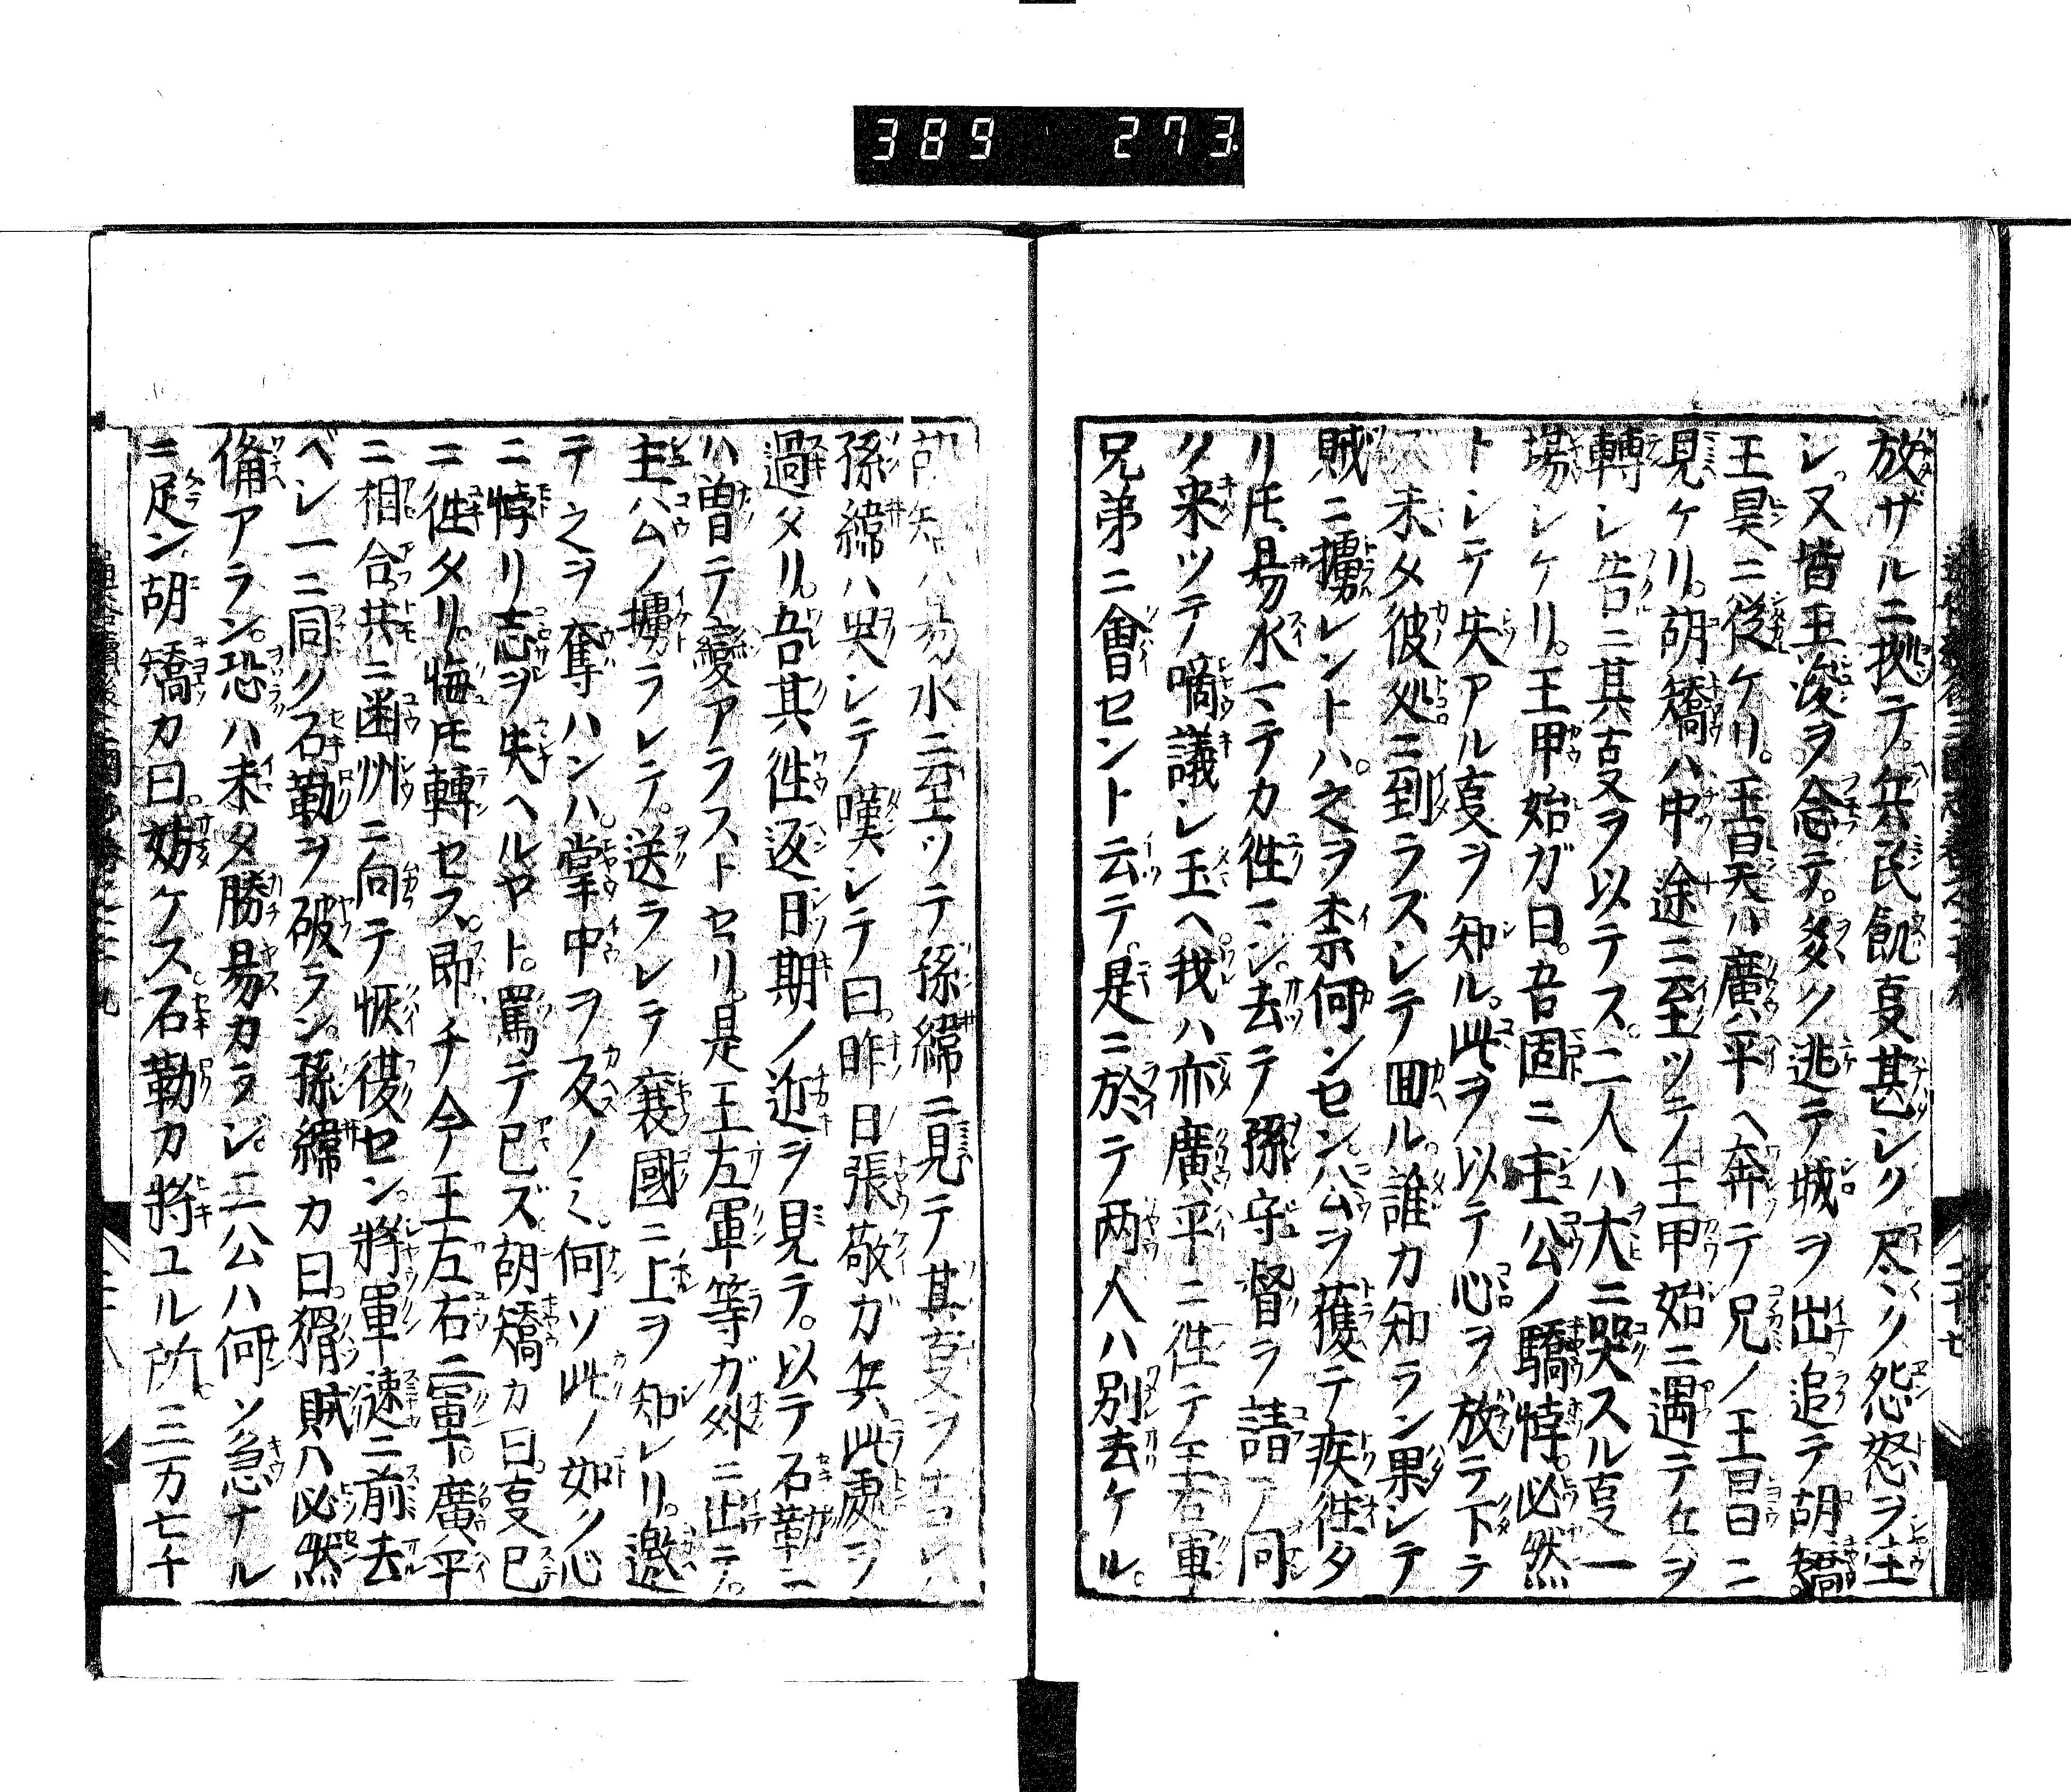 389 273
放ザルニ拠テ。兵民飢㕝甚シク尽ク怨怒ヲ生
シ。又皆王浚ヲ念テ。多ク逃テ城ヲ出追テ胡矯。
王昊ニ従ケリ。王昊ハ廣平ヘ奔テ兄ノ王昌ニ
見ケリ。胡矯ハ中途ニ至ツテ王甲始ニ遇テ兵ヲ
轉シ告ニ其㕝ヲ以テス。二人ハ大ニ哭スル㕝一
場シケリ。王甲始ガ曰。吾固ニ主公ノ驕悖。必然
トシテ失アル㕝ヲ知ル。此ヲ以テ心ヲ放テ下テ
ズ未タ彼処ニ到ラズシテ囬ル。誰カ知ラン果シテ
賊ニ擄レントハ。之ヲ柰何ンセン。公ヲ獲テ疾徃タ
リ𪜈易水マテカ徃ン。去テ孫守督ラ請フ同
ク来ツテ啇議シ玉ヘ。我ハ亦廣平ニ徃テ王右軍
兄弟ニ會セント云テ。是ニ於テ两人ハ別去ケル。
胡矯ハ易水ニ至ツテ孫緯ニ見テ其㕝ヲ
孫緯ハ哭シテ嘆シテ曰。昨日張敬ガ兵此處ヲ
過タリ。吾其徃返日期ノ近ヲ見テ。以テ石勒ニ
ハ曽テ變アラストセリ。是王左軍等ガ外ニ出テ。
主公ノ擄ラレテ。送ラレテ襄國ニ上ヲ知レリ。邀
テ之ヲ奪ハンハ。掌中ヲ反ノミ。何ソ此ノ如ク心
ニ悖リ志ヲ失ヘルヤト。罵テ已ズ胡矯カ曰。㕝已
ニ徃タリ。悔𪜈轉セス。即チ今王左右二軍。廣平
ニ相合。共ニ幽州ニ向テ恢復セン。將軍速ニ前去
ベシ一ニ同ク石勒ヲ破ラン。孫緯カ曰。猾賊ハ必然
備アラン。恐ハ未タ勝易カラジ。二公ハ何ソ急ナル
ニ足ン胡矯カ曰。妨ケス。石勒カ將ユル所。三万七千